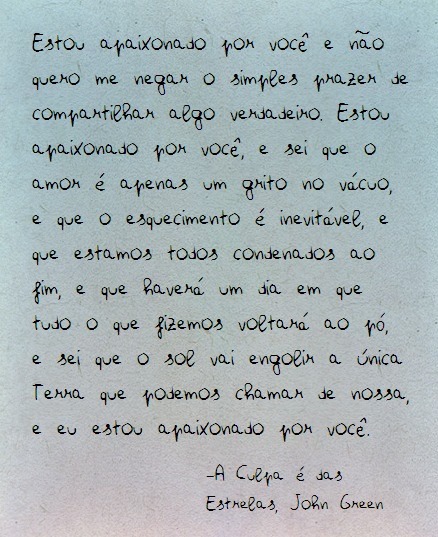 Estou apaixonado por você e não
quero me negar o simples prazer de
compartilhar algo verdadeiro. Estou
apaixonado por você, e sei que o
amor é apenas um grito no vácuo,
e que o esquecimento é inevitável, e
que estamos todos condenados ao
fim, e que haverá um dia em que
tudo o que fizemos voltará ao pó,
e sei que o sol vai engolir a única
Terra que podemos chamar de nossa,
e eu estou apaixonado por você.
-A Culpa é das
Estrelas, John Green